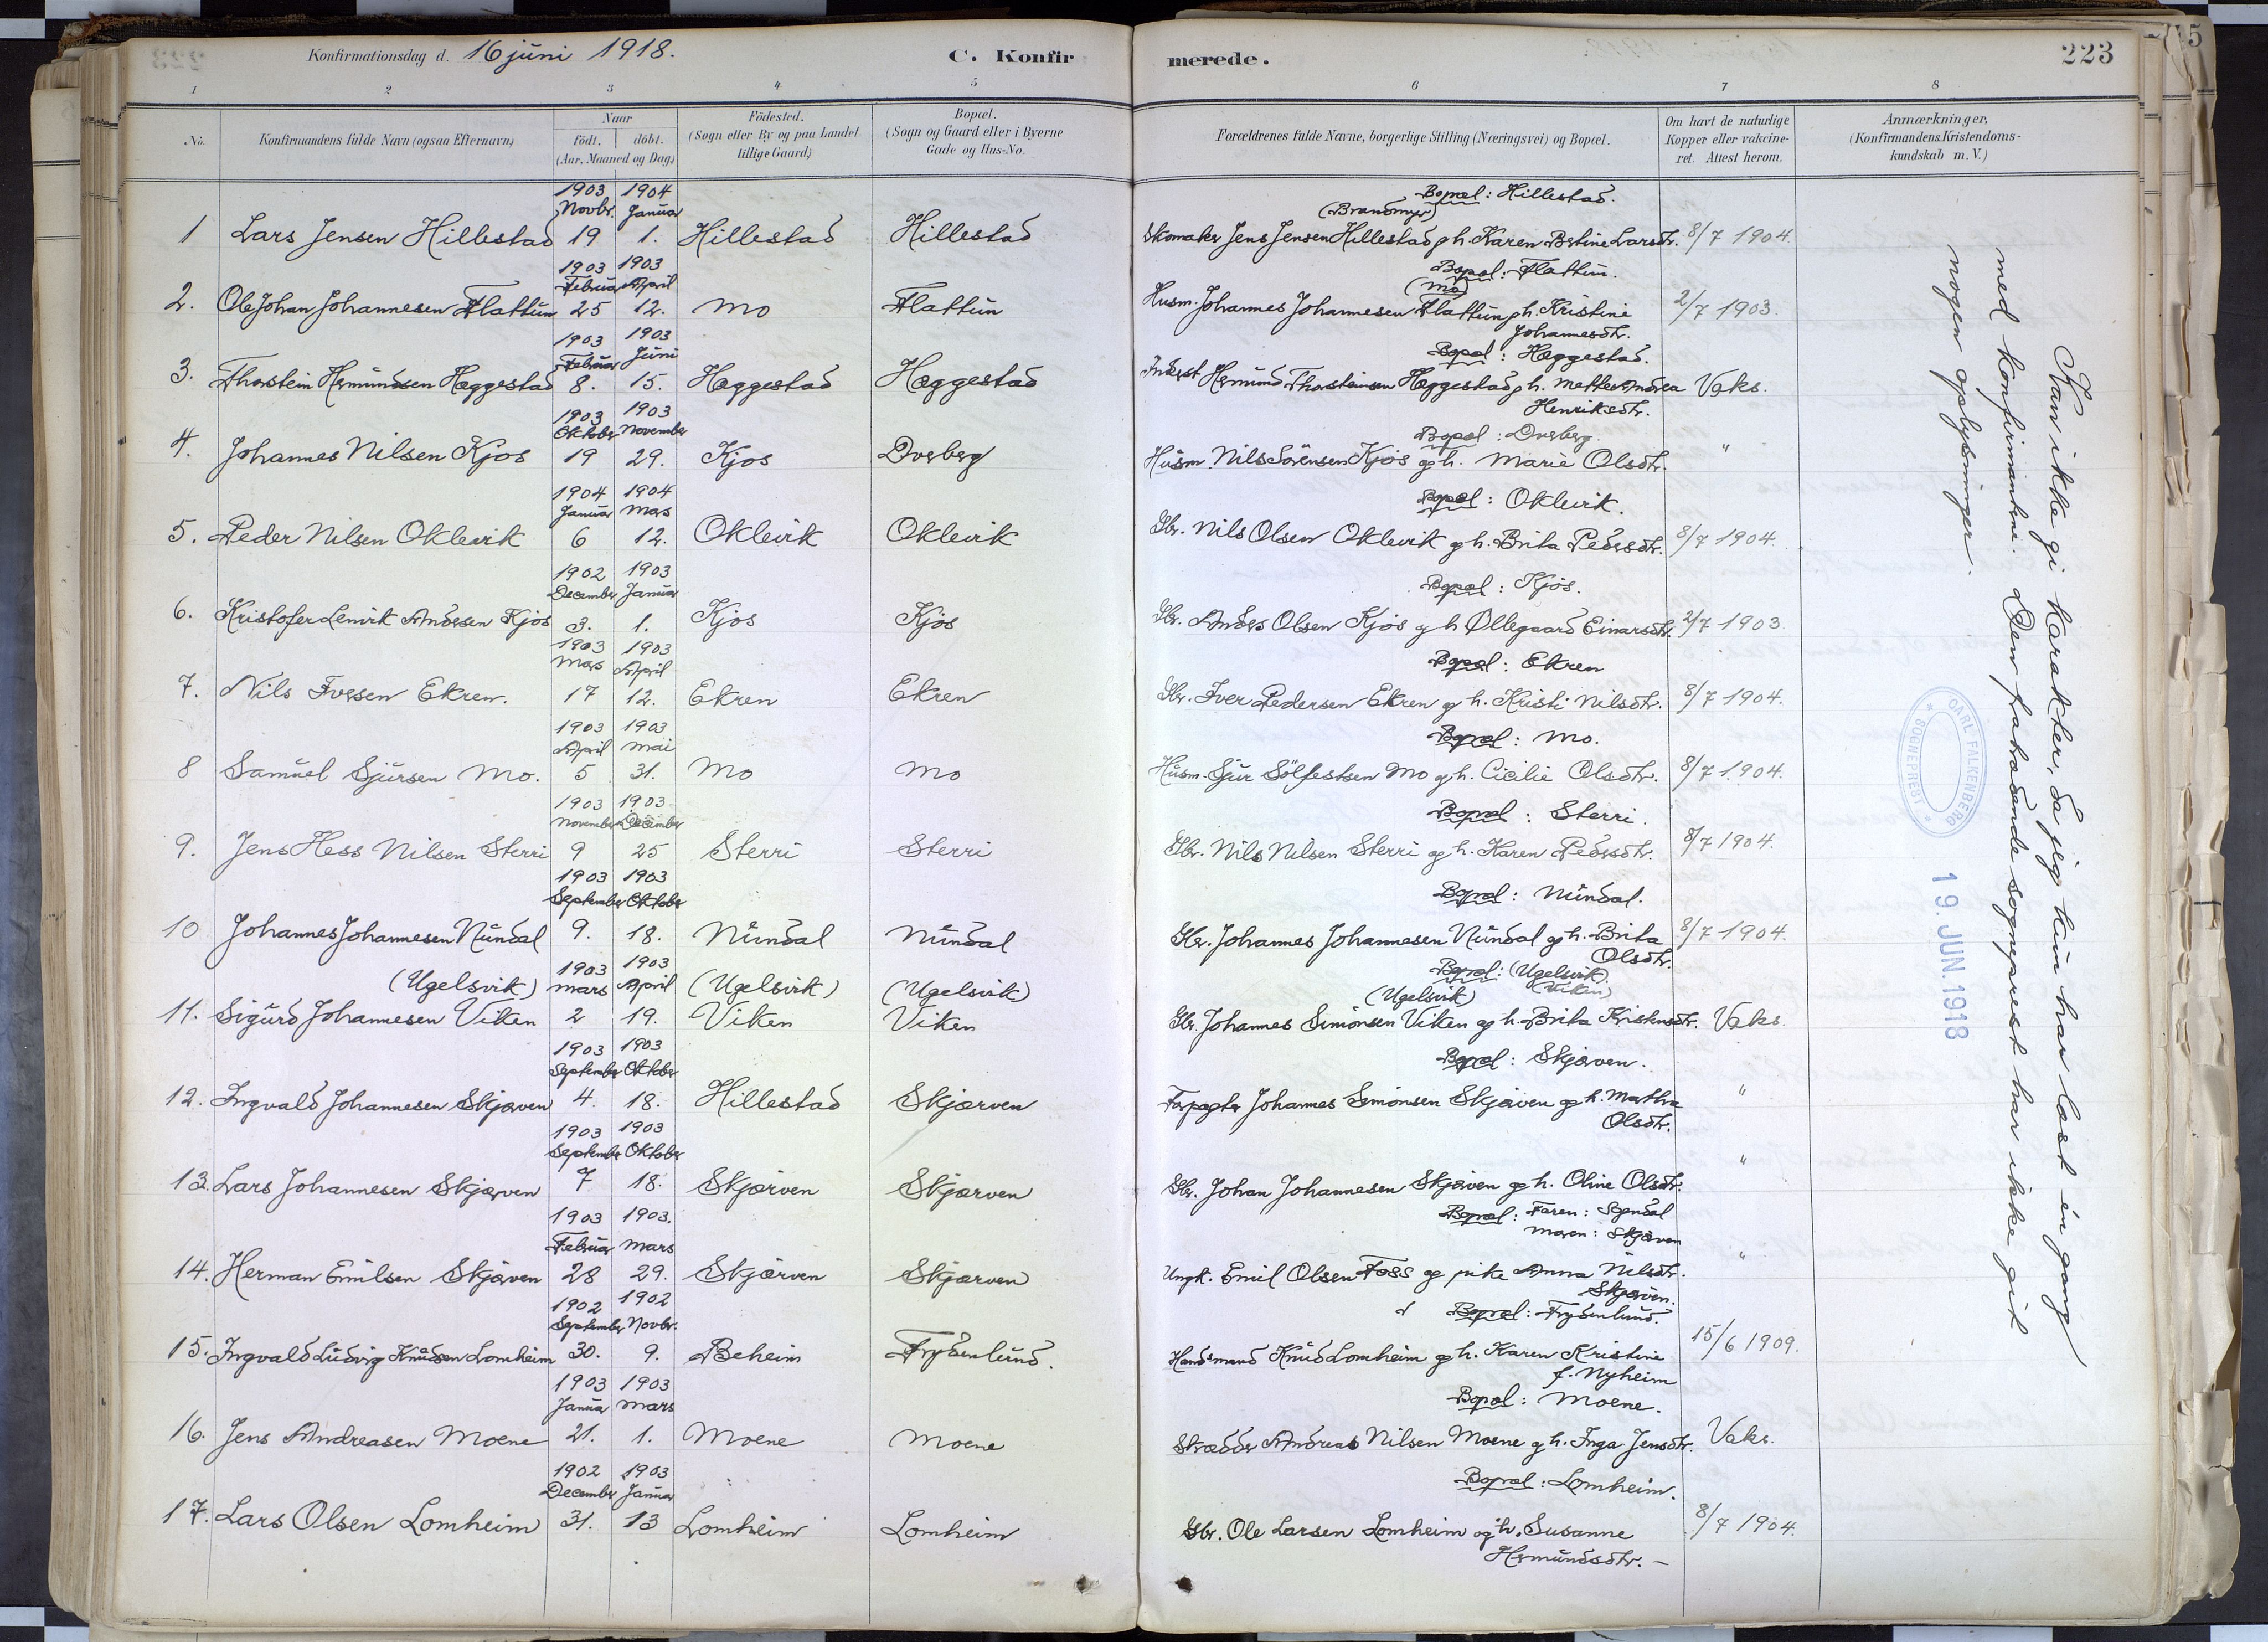 Konfirmationsdag d. 16 juni 1918.
C. Konfirmerede.
223
1 2 3 4 5 6 7 8
No.
Konfirmandens fulde Navn (ogsaa Efternavn)
Naar
födt. döbt.
(Aar, Maaned og Dag.)
Födested.
(Sogn eller By og paa Landet
tillige Gaard)
Bopæl.
(Sogn og Gaard eller i Byerne
Gade og Hus-No.
Forældrenes fulde Navne, borgerlige Stilling (Næringsvei) og Bopæl.
Om havt de naturlige
Kopper eller vakcine-
ret. Attest herom.
Anmærkninger,
(Konfirmandens Kristendoms-
kundskab m. V.)
1903 1904 Bopæl: Hillestad.
Novbr. Januar (Brandmyr)
1 Lars Jensen Hillestad 19 1. Hillestad Hillestad Skomaker Jens Jensen Hillestad g h. Karen Bertine Larsdtr. 8/7 1904.
1903 1903 Bopæl: Flattun.
Februar April (Mo)
2. Ole Johan Johannesen Flattun 25 12. Mo Flattun Husm. Johannes Johannesen Flattun g h. Kristine 2/7 1903.
Johannesdtr.
1903 1903 Bopæl: Hæggestad.
Februar Juni
3. Thorstein Hermundsen Hæggestad 8. 15. Hæggestad Hæggestad Inderst Hermund Thorsteinsen Hæggestad g h. Mette Andrea Vaks.
Henriksdtr.
1903 1903 Bopæl: Dverberg.
Oktober November
4. Johannes Nilsen Kjos 19 29. Kjos Dverberg Husm. Nils Sörensen Kjos og h. Marie Olsdtr. "
1904 1904 Bopæl: Oklevik.
Januar Mars
5. Peder Nilsen Oklevik 6 12. Oklevik Oklevik Gbr. Nils Olsen Oklevik g h. Brita Pedersdtr. 8/7 1904.
1902 1903 Bopæl: Kjos.
December Januar
6. Kristofer Lenvik Andersen Kjos 3. 1. Kjos Kjos Gbr. Anders Olsen Kjos g h Øllegaard Einarsdtr. 2/7 1903.
1903 1903 Bopæl: Ekren
Mars April
7. Nils Iversen Ekren. 17 12. Ekren Ekren Gbr. Iver Pedersen Ekren g h. Kristi Nilsdtr. 8/7 1904.
1903 1903 Bopæl: Mo.
April Mai
8 Samuel Sjursen Mo. 5 31. Mo Mo Husm. Sjur Sölfestsen Mo g h. Cicilie Olsdtr. 8/7 1904.
1903 1903 Bopæl: Sterri.
November December
9. Jens Hess Nilsen Sterri 9 25 Sterri Sterri Gbr. Nils Nilsen Sterri g h. Karen Pedersdtr. 8/7 1904.
1903 1903 Bopæl: Nundal.
September Oktober
10 Johannes Johannesen Nundal 9. 18. Nundal Nundal Gbr. Johannes Johannesen Nundal g h. Brita 8/7 1904.
Olsdtr.
1903 1903 Bopæl: (Ugelsvik)
(Ugelsvik) Mars April (Ugelsvik) (Ugelsvik) (Ugelsvik) (Viken)
11. Sigurd Johannesen Viken 2 19. Viken Viken Gbr. Johannes Simonsen Viken og h. Brita Kristensdtr. Vaks.
1903 1903 Bopæl: Skjærven.
September Oktober
12. Ingvald Johannesen Skjærven 4. 18. Hillestad Skjærven Forpagter Johannes Simonsen Skjærven og h. Martha "
Olsdtr.
1903 1903
September Oktober
13. Lars Johannesen Skjærven 7 18. Skjærven Skjærven Gbr. Johan Johannesen Skjærven og h. Oline Olsdtr. "
1903 1903. Bopæl: Faren: Sogndal
Februar Mars Moren: Skjærven
14. Herman Emilsen Skjærven 28 29. Skjærven Skjærven Ungk. Emil Olsen Foss og pike Anna Nilsdtr. "
Skjærven.
1902 1902 Bopæl: Frydenlund.
September Novbr.
15. Ingvald Ludvig Knudsen Lomheim 30. 9. Beheim Frydenlund. Handsmand Knud Lomheim g h. Karen Kristine 15/6 1909.
f. Nyheim
1903 1903 Bopæl: Moene.
Januar Mars
16. Jens Andreasen Moene 21. 1. Moene Moene Skrædder Andreas Nilsen Moene g h. Inga Jensdtr. Vaks.
1902 1903 Bopæl: Lomheim.
December Januar
17. Lars Olsen Lomheim 31. 13 Lomheim Lomheim Gbr. Ole Larsen Lomheim og h. Susanne 8/7 1904.
Hermundsdtr. –
Kan ikke gi karakter, da jeg kun har læst én gang
med konfirmantene. Den fratrædende sogneprest har ikke git
nogen oplysninger.
CARL FALKENBERG
* SOGNEPREST *
19. JUN. 1918